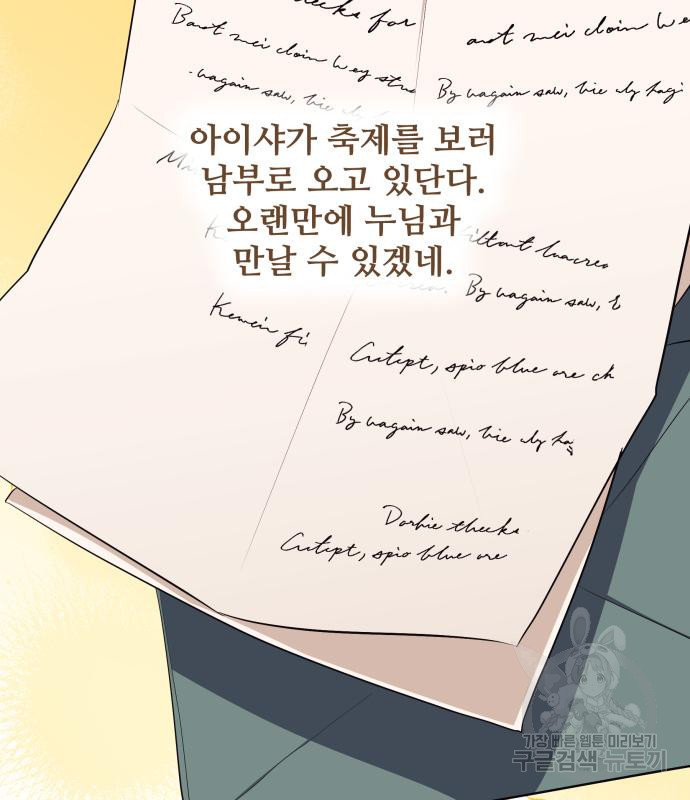 for
Baot mei cloin wey stra
aot mei cloin wey
wagain saw, bie ly
By wagain saw, bie ly hagi
아이샤가 축제를 보러
남부로 오고 있단다.
오랜만에 누님과
만날 수 있겠네.
By wagain saw, b
Kewein fi
Cutept, spio blue ore ch
By wagain saw, bie ly ha
Dorbie thecks
Cutept, spio blue ore
가장 빠른 웹툰 미리보기
구글검색 뉴토끼